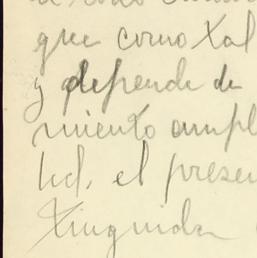 que como tal
y depende de
miento ampl
Ud. el prese
tinguida